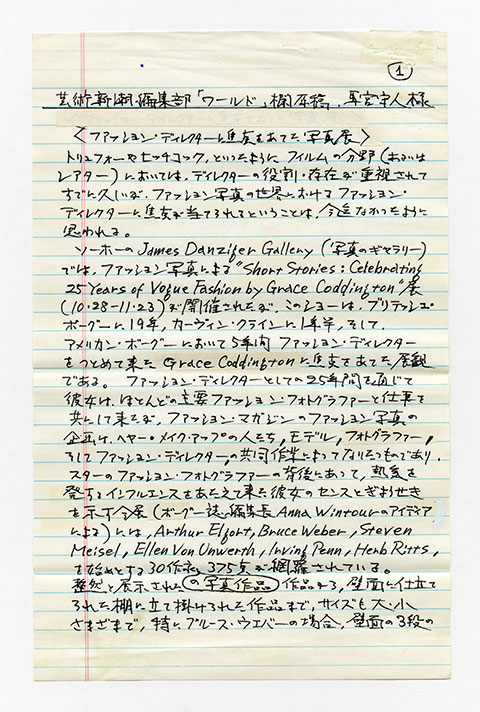 ①
芸術新潮編集部「ワールド」欄原稿, 様
〈ファッション・ディレクターに焦点をあてた写真展〉
トリュフォーやヒッチコック, といったように フィルムの分野(あるいは
レアター)においては, ディレクターの役割・存在が重視されて
すでに久しいが, ファッション写真の世界におけるファッション・
ディレクターに焦点が当てられるということは, 今迄なかったように
思われる。
ソーホーの James Danzifer Gallery (写真のギャラリー)
では, ファッション写真による "Short Stories: Celebrating
25 Years of Vogue Fashion by Grace Coddington" 展
(10·28–11·23) が開催されたが, このショーは, ブリテッシュ・
ボーグに19年, カーヴィン・クラインに1年半, そして,
アメリカン・ボーグにおいて5年間 ファッション・ディレクター
をつとめて来た Grace Coddingtonに焦点をあてた展観
である。 ファッション・ディレクターとしての25年間を通じて
彼女は, ほとんどの主要ファッション・フォトグラファーと仕事を
共にして来たが, ファッション・マガジンのファッション写真の
企画は, ヘヤー・メイク・アップの人たち, モデル, フォトグラファー,
そしてファッション・ディレクターの共同作業によってなりたつものであり,
スターのファッション・フォトグラファーの背後にあって, 熱気を
発するインフルエンスをあたえて来た彼女のセンスとぎょうせき
を示す会展 (ボーグ誌の編集長 Anna Wintourのアイディア
による) には, Arthur Elfort, Bruce Weber, Steven
Meisel, Ellen Von Unwerth, Irving Penn, Herb Ritts,
を始めとする 30作家, 375点が網羅されている。
整然と展示された の写真作品 作品から, 壁面に仕立て
られた棚に立て掛けられた作品まで, サイズも大・小
さまざまで, 特にブルース・ウエバーの場合, 壁面の3段の